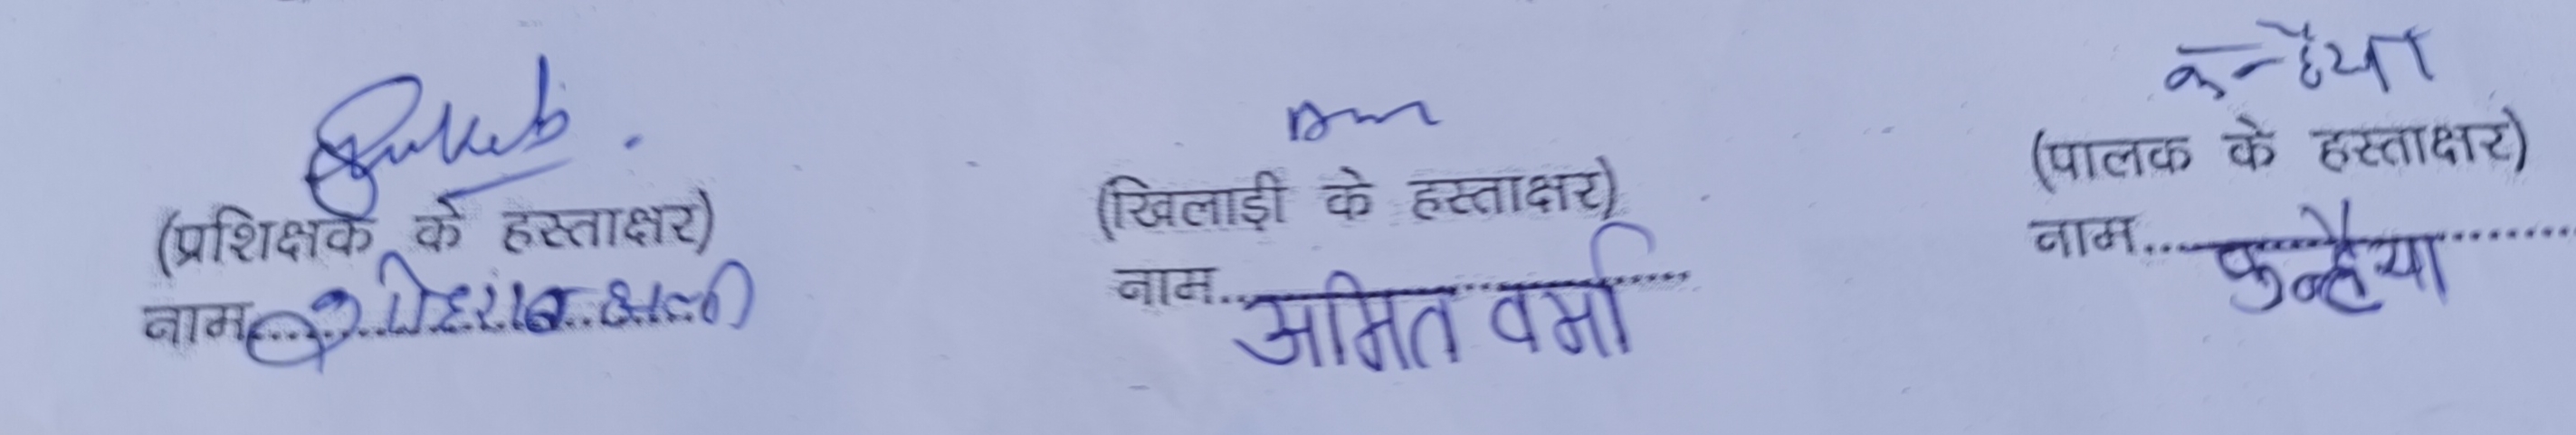 कन्हैया
(प्रशिक्षक के हस्ताक्षर) (खिलाड़ी के हस्ताक्षर) (पालक के हस्ताक्षर)
नाम नाम अमित वर्मा नाम कन्हैया